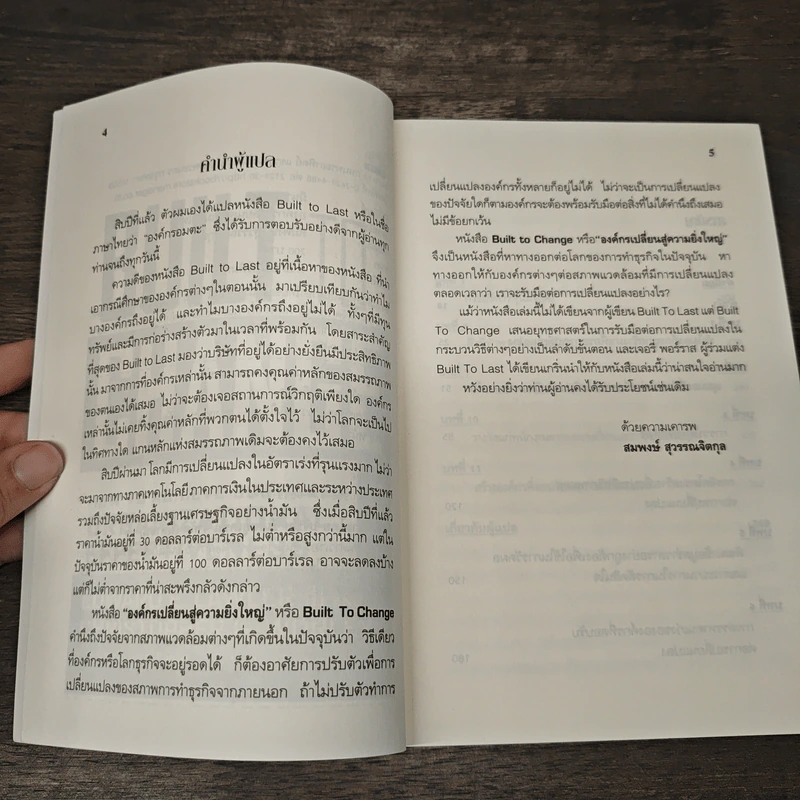 4
คำนำผู้แปล
สิบปีที่แล้ว ตัวผมเองได้แปลหนังสือ Built to Last หรือในชื่อ
ภาษาไทยว่า "องค์กรอมตะ" ซึ่งได้รับการตอบรับอย่างดีจากผู้อ่านทุก
ท่านจนถึงทุกวันนี้
ความดีของหนังสือ Built to Last อยู่ที่เนื้อหาของหนังสือ ที่นำ
เอากรณีศึกษาขององค์กรต่างๆในตอนนั้น มาเปรียบเทียบกันว่าทำไม
บางองค์กรถึงอยู่ได้ และทำไมบางองค์กรถึงอยู่ไม่ได้ ทั้งๆที่มีทุน
ทรัพย์และมีการก่อร่างสร้างตัวมาในเวลาที่พร้อมกัน โดยสาระสำคัญ
ที่สุดของ Built to Last มองว่าบริษัทที่อยู่ได้อย่างยั่งยืนมีประสิทธิภาพ
นั้น มาจากการที่องค์กรเหล่านั้น สามารถคงคุณค่าหลักของสมรรถภาพ
ของตนเองได้เสมอ ไม่ว่าจะต้องเจอสถานการณ์วิกฤติเพียงใด องค์กร
เหล่านั้นไม่เคยทิ้งคุณค่าหลักที่พวกตนได้ตั้งใจไว้ ไม่ว่าโลกจะเป็นไป
ในทิศทางใด แกนหลักแห่งสมรรถภาพเดิมจะต้องคงไว้เสมอ
สิบปีผ่านมา โลกมีการเปลี่ยนแปลงในอัตราเร่งที่รุนแรงมาก ไม่ว่า
จะมาจากทางภาคเทคโนโลยี ภาคการเงินในประเทศและระหว่างประเทศ
รวมถึงปัจจัยหล่อเลี้ยงฐานเศรษฐกิจอย่างน้ำมัน ซึ่งเมื่อสิบปีที่แล้ว
ราคาน้ำมันอยู่ที่ 30 ดอลลาร์ต่อบาร์เรล ไม่ต่ำหรือสูงกว่านี้มาก แต่ใน
ปัจจุบันราคาของน้ำมันอยู่ที่ 100 ดอลลาร์ต่อบาร์เรล อาจจะลดลงบ้าง
แต่ก็ไม่ต่ำจากราคาที่น่าสะพรึงกลัวดังกล่าว
หนังสือ "องค์กรเปลี่ยนสู่ความยิ่งใหญ่" หรือ Built To Change
คำนึงถึงปัจจัยจากสภาพแวดล้อมต่างๆที่เกิดขึ้นในปัจจุบันว่า วิธีเดียว
ที่องค์กรหรือโลกธุรกิจจะอยู่รอดได้ ก็ต้องอาศัยการปรับตัวเพื่อการ
เปลี่ยนแปลงของสภาพการทำธุรกิจจากภายนอก ถ้าไม่ปรับตัวทำการ
5
เปลี่ยนแปลงองค์กรทั้งหลายก็อยู่ไม่ได้ ไม่ว่าจะเป็นการเปลี่ยนแปลง
ของปัจจัยใดก็ตามองค์กรจะต้องพร้อมรับมือต่อสิ่งที่ไม่ได้คำนึงถึงเสมอ
ไม่มีข้อยกเว้น
หนังสือ Built to Change หรือ"องค์กรเปลี่ยนสู่ความยิ่งใหญ่"
จึงเป็นหนังสือที่หาทางออกต่อโลกของการทำธุรกิจในปัจจุบัน หา
ทางออกให้กับองค์กรต่างๆต่อสภาพแวดล้อมที่มีการเปลี่ยนแปลง
ตลอดเวลาว่า เราจะรับมือต่อการเปลี่ยนแปลงอย่างไร?
แม้ว่าหนังสือเล่มนี้ไม่ได้เขียนจากผู้เขียน Built To Last แต่ Built
To Change เสนอยุทธศาสตร์ในการรับมือต่อการเปลี่ยนแปลงใน
กระบวนวิธีต่างๆอย่างเป็นลำดับขั้นตอน และเจอรี่ พอร์ราส ผู้ร่วมแต่ง
Built To Last ได้เขียนเกริ่นนำให้กับหนังสือเล่มนี้ว่าน่าสนใจอ่านมาก
หวังอย่างยิ่งว่าท่านผู้อ่านคงได้รับประโยชน์เช่นเดิม
ด้วยความเคารพ
สมพงษ์ สุวรรณจิตกุล